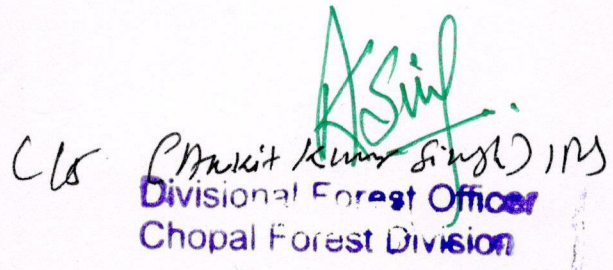 ASingh
(Ankit Kumar Singh) IFS
Divisional Forest Officer
Chopal Forest Division